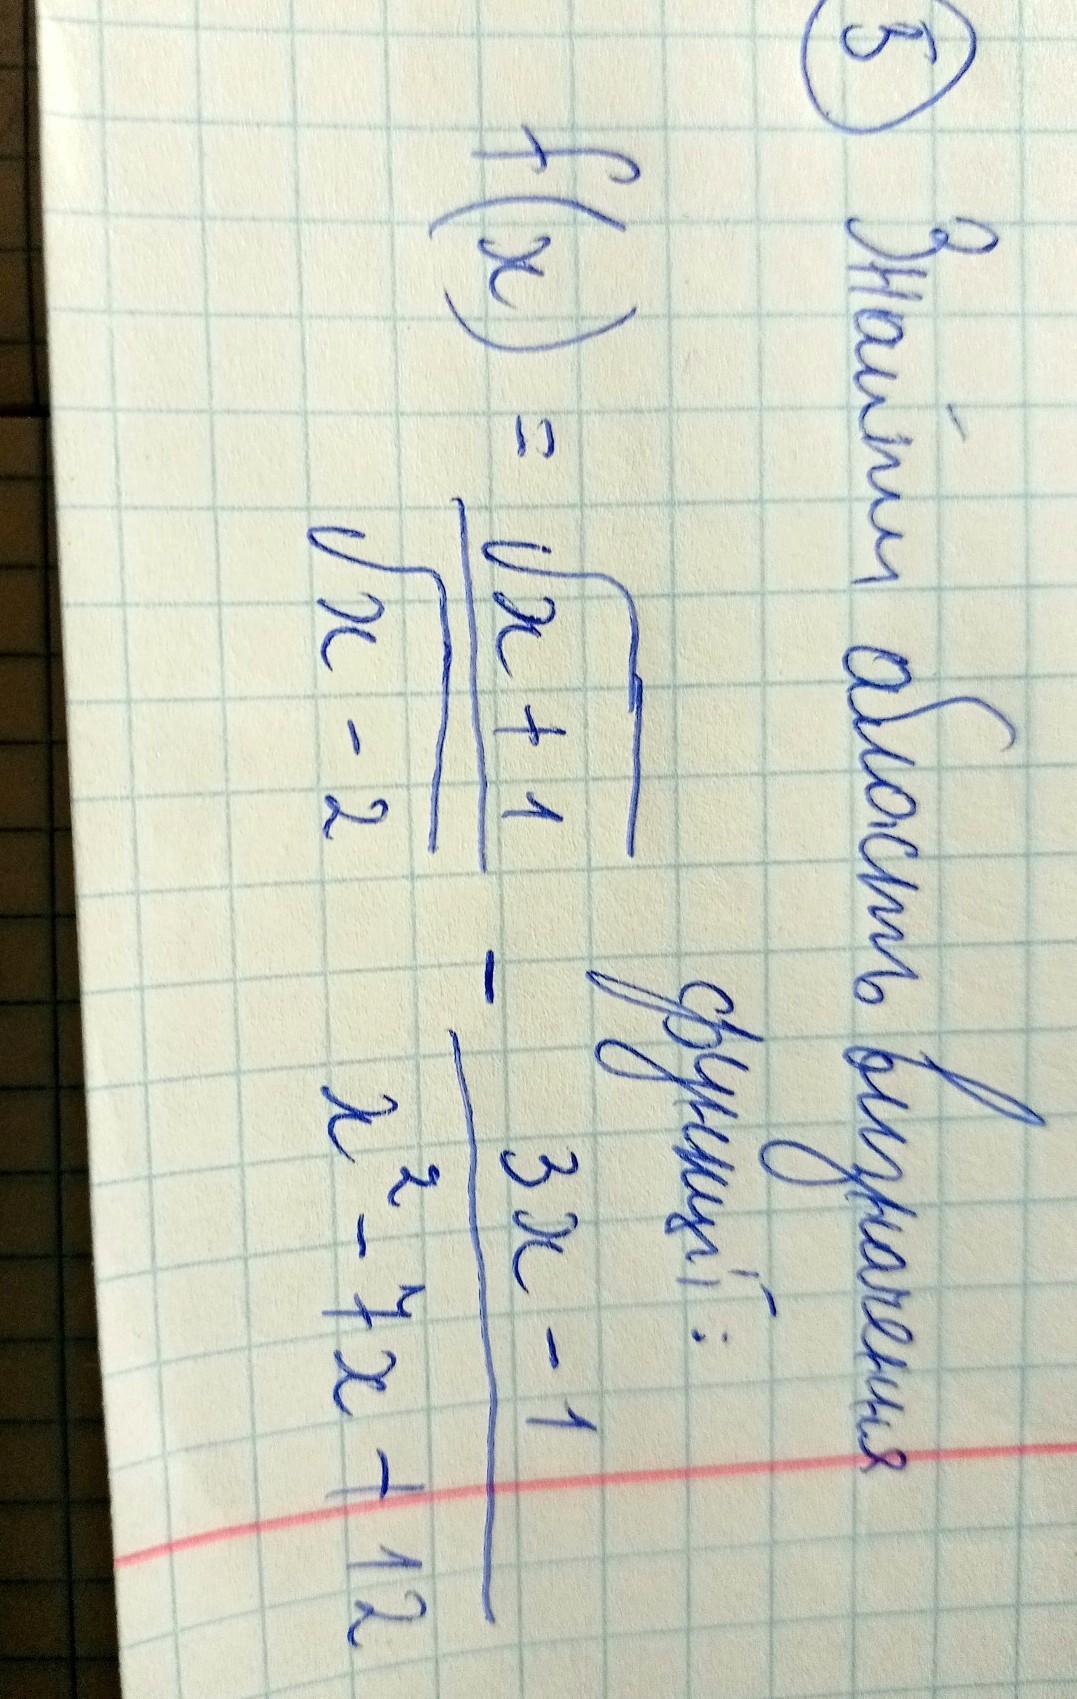 5 Знайти область визначення
функції:
f(x) = √(x + 1) / √(x - 2) - (3x - 1) / (x² - 7x + 12)